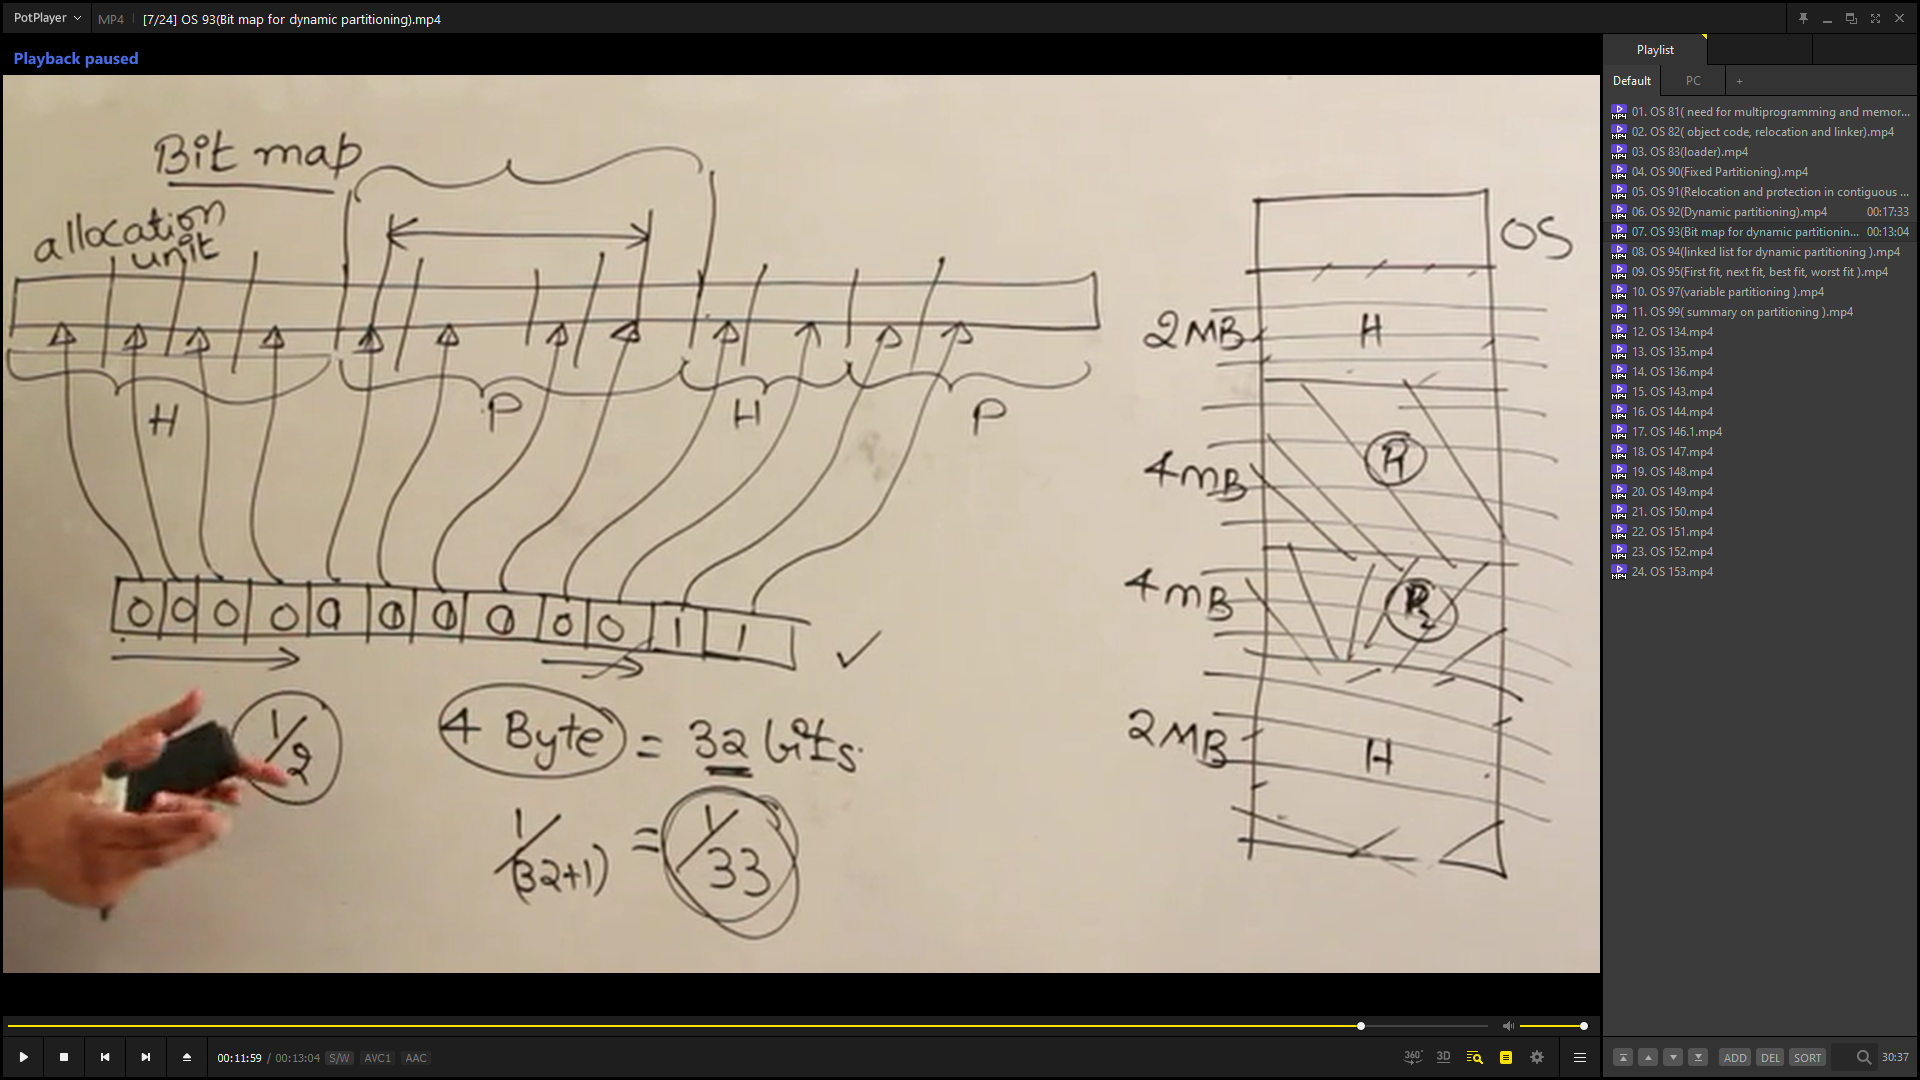 PotPlayer
MP4
[7/24] OS 93(Bit map for dynamic partitioning).mp4
Playback paused
Bit map
allocation
unit
H
P
H
P
0 0 0 0 0 0 0 0 0 0 1 1
1/2
4 Byte = 32 bits.
1/(32+1) = 1/33
OS
2MB
H
4MB
P1
4MB
P2
2MB
H
Playlist
Default
PC
+
01. OS 81( need for multiprogramming and memor...
02. OS 82( object code, relocation and linker).mp4
03. OS 83(loader).mp4
04. OS 90(Fixed Partitioning).mp4
05. OS 91(Relocation and protection in contiguous ...
06. OS 92(Dynamic partitioning).mp4 00:17:33
07. OS 93(Bit map for dynamic partitionin... 00:13:04
08. OS 94(linked list for dynamic partitioning ).mp4
09. OS 95(First fit, next fit, best fit, worst fit ).mp4
10. OS 97(variable partitioning ).mp4
11. OS 99( summary on partitioning ).mp4
12. OS 134.mp4
13. OS 135.mp4
14. OS 136.mp4
15. OS 143.mp4
16. OS 144.mp4
17. OS 146.1.mp4
18. OS 147.mp4
19. OS 148.mp4
20. OS 149.mp4
21. OS 150.mp4
22. OS 151.mp4
23. OS 152.mp4
24. OS 153.mp4
00:11:59 / 00:13:04 S/W AVC1 AAC
360°
3D
ADD DEL SORT
30:37